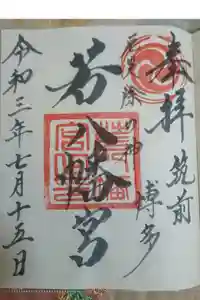 奉拝
筑前
博多
厄除の神
若八幡宮
令和三年七月十五日